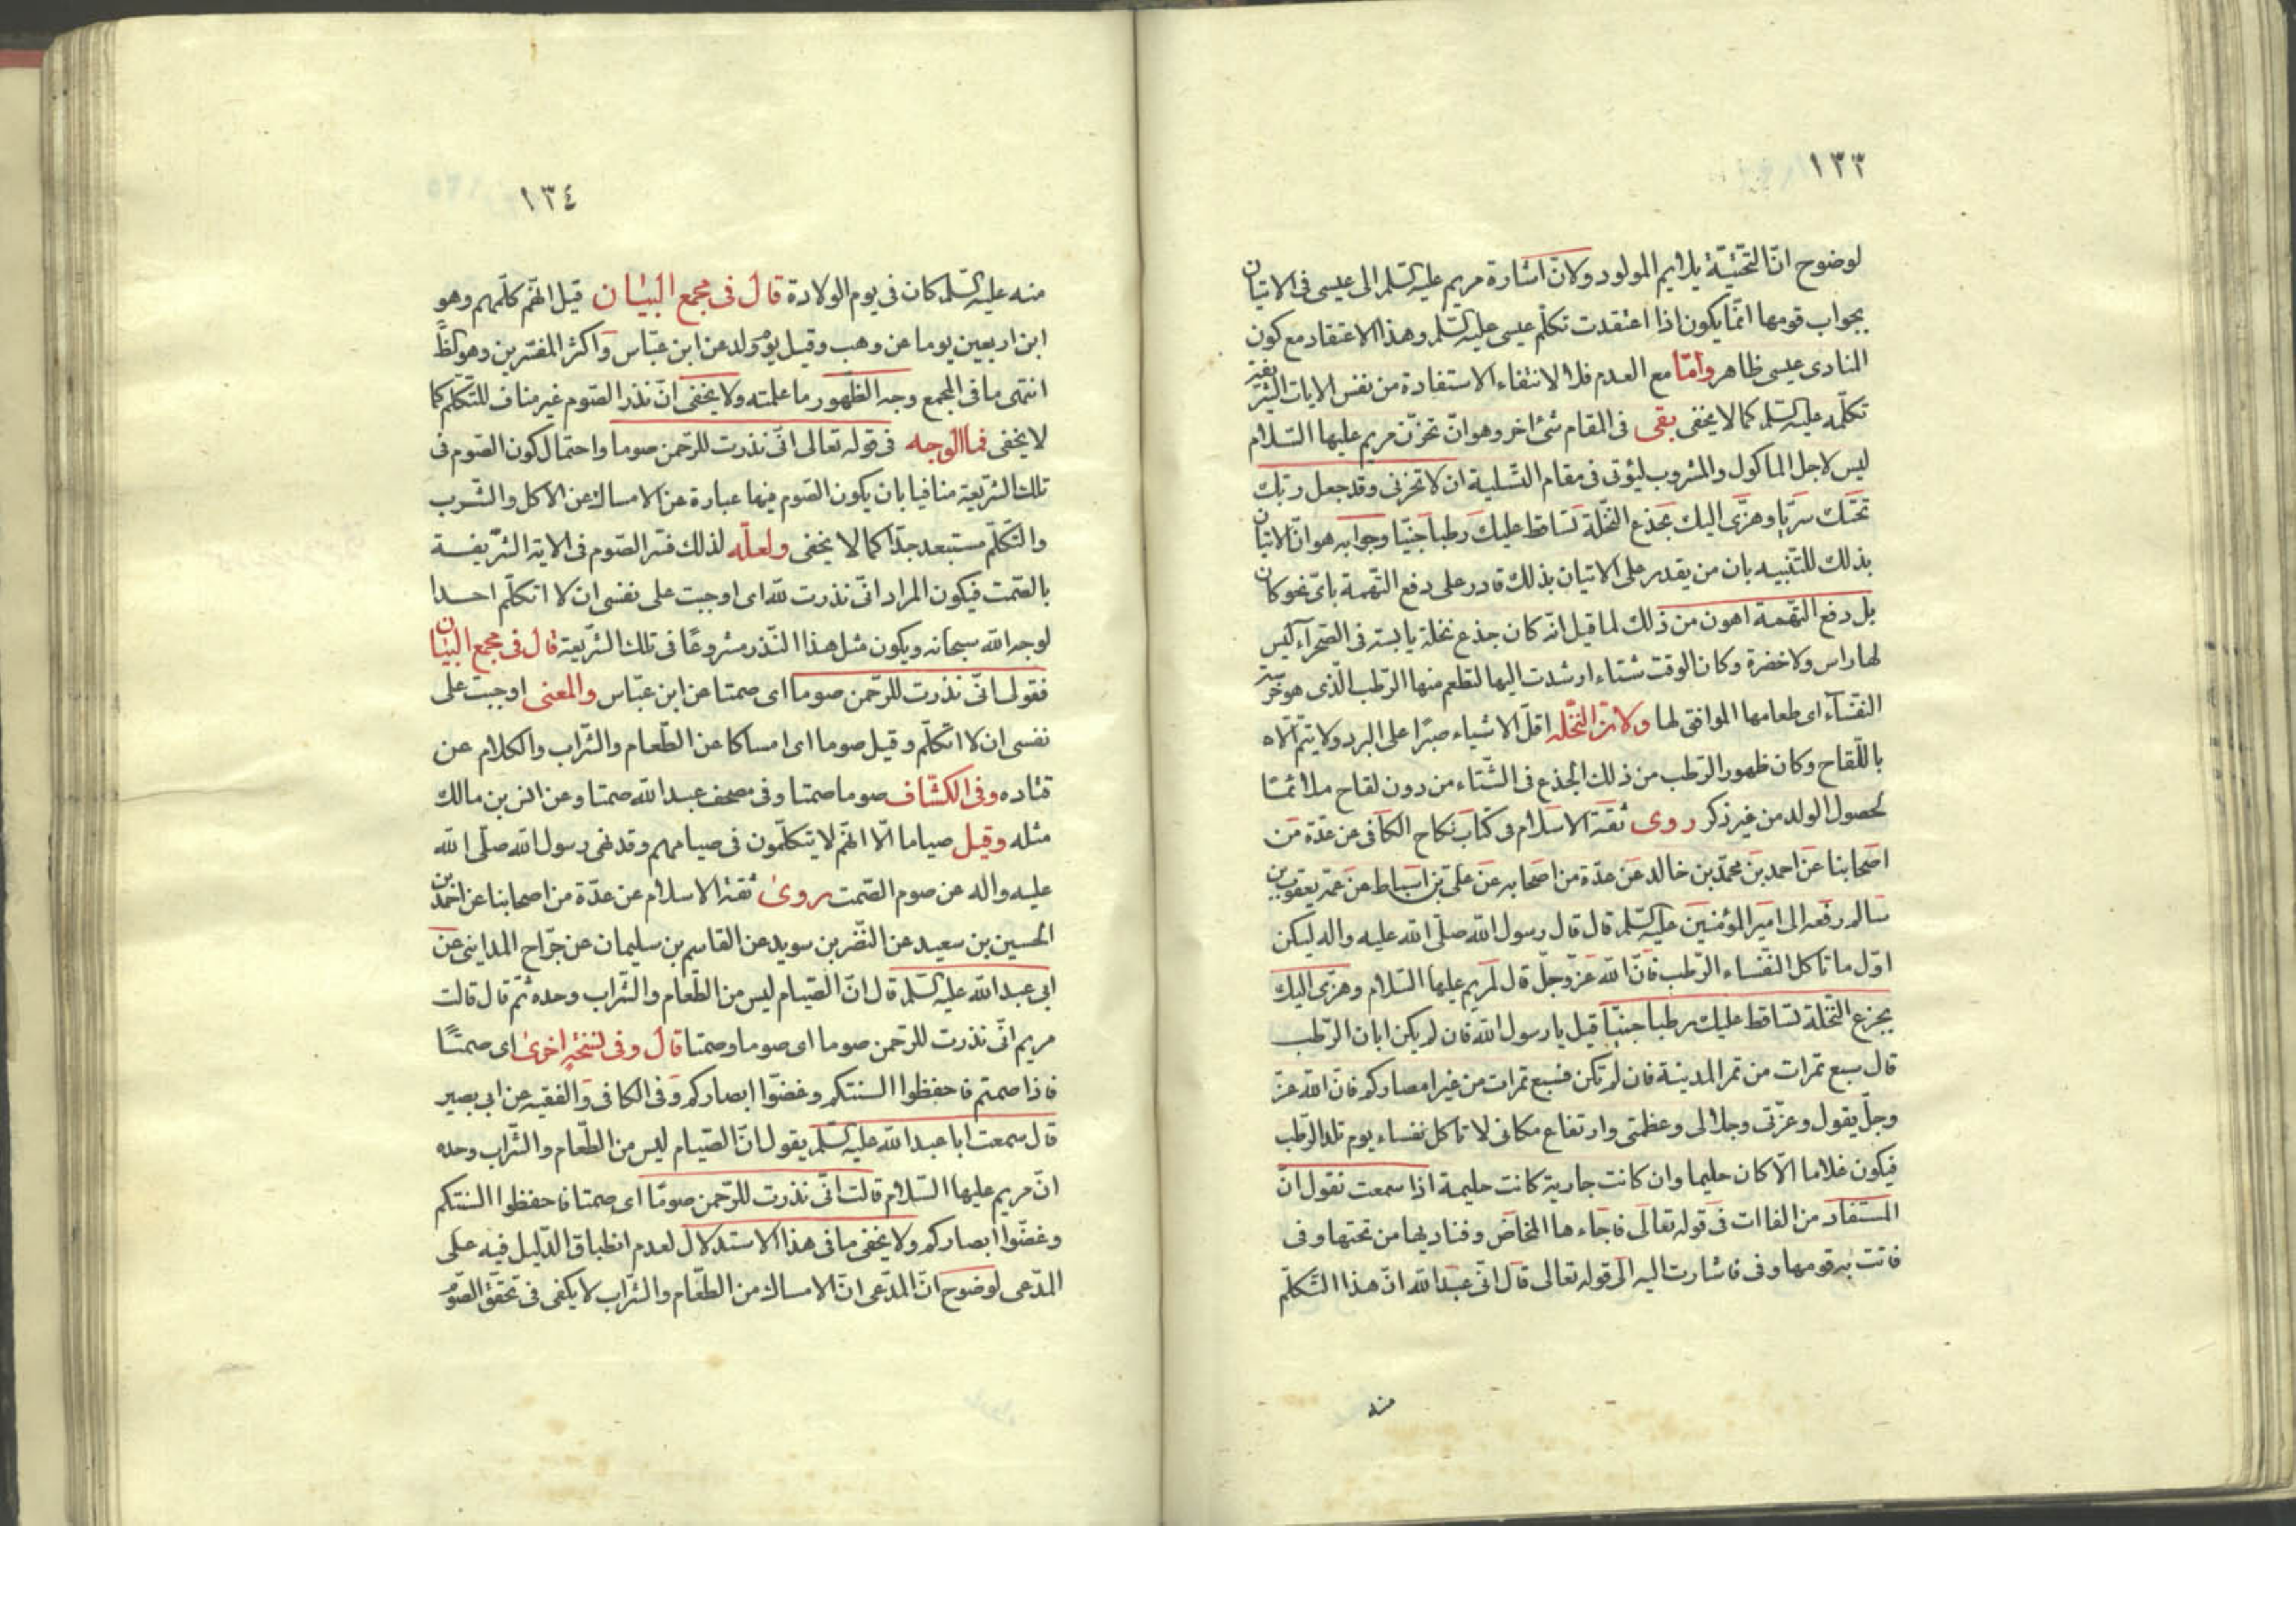 ١٣٣
لوضوح انّ التحتيّة يلايم المولود ولانّ اشارة مريم عليها السّلم الى عيسى فى الاتيان
بجواب قومها انّما يكون اذا اعتقدت تكلّم عيسى عليه السّلم وهذا الاعتقاد مع كون
المنادى عيسى ظاهر وامّا مع العدم فلا لانتفاء الاستفادة من نفس الايات الشريفة
تكلّمه عليه السّلم كما لا يخفى بقى فى المقام شئ اخر وهو انّ تحزّن مريم عليها السّلام
ليس لاجل الماكول والمشروب ليؤتى فى مقام التّسلية ان لا تحزنى وقد جعل ربّك
تحتك سريّا وهزّى اليك بجذع النّخلة تساقط عليك رطبا جنيّا وجوابه هو انّ الاتيان
بذلك للتّنبيه بان من يقدر على الاتيان بذلك قادر على دفع التّهمة باىّ نحو كان
بل دفع التّهمة اهون من ذلك لما قيل انّه كان جذع نخلة يابسة فى الصّحراء ليس
لها راس ولا خضرة وكان الوقت شتاء ارشدت اليها لتطعم منها الرّطب الّذى هو خرسة
النفساء اى طعامها الموافق لها ولانّ النّخلة اقلّ الاشياء صبرا على البرد ولا يتمّ الّا
باللّقاح وكان ظهور الرّطب من ذلك الجذع فى الشّتاء من دون لقاح ملائمًا
لحصول الولد من غير ذكر روى ثقة الاسلام فى كتاب نكاح الكافى عن عدّة من
اصحابنا عن احمد بن محمّد بن خالد عن عدّة من اصحابه عن علىّ بن اسباط عن عمّه يعقوب بن
سالم رفعه الى امير المؤمنين عليه السّلم قال قال رسول الله صلّى الله عليه واله ليكن
اوّل ما تاكل النّفساء الرّطب فانّ الله عزّ وجلّ قال لمريم عليها السّلام وهزّى اليك
بجزع النّخلة تساقط عليك رطبا جنيّا قيل يا رسول الله فان لم يكن ابان الرّطب
قال سبع تمرات من تمر المدينة فان لم تكن فسبع تمرات من غير امصاركم فانّ الله عزّ
وجلّ يقول وعزّتى وجلالى وعظمتى وارتفاع مكانى لا تاكل نفساء يوم تلد الرّطب
فيكون غلاما الّا كان حليما وان كانت جارية كانت حليمة اذا سمعت نقول انّ
المستفاد من الفاات فى قوله تعالى فاجاءها المخاض و فناديها من تحتها و فى
فاتت به قومها و فى فاشارت اليه الى قوله تعالى قال انّى عبد الله انّ هذا التّكلّم
منه
١٣٤
منه عليه السّلم كان فى يوم الولادة قال فى مجمع البيان قيل انّهم كلّمهم وهو
ابن اربعين يوما عن وهب وقيل يوم ولد عن ابن عبّاس واكثر المفسّرين وهو الظّ
انتهى ما فى المجمع وجه الظّهور ما علمته ولا يخفى انّ نذر الصّوم غير مناف للتّكلّم كما
لا يخفى فما الوجه فى قوله تعالى انّى نذرت للرّحمن صوما واحتمال كون الصّوم فى
تلك الشّريعة منافيا بان يكون الصّوم فيها عبارة عن الامساك عن الاكل والشّرب
والتّكلّم مستبعد جدّا كما لا يخفى ولعلّه لذلك فسّر الصّوم فى الاية الشّريفة
بالصّمت فيكون المراد انّى نذرت لله اى اوجبت على نفسى ان لا اتكلّم احدا
لوجه الله سبحانه ويكون مثل هذا النّذر مشروعًا فى تلك الشّريعة قال فى مجمع البيان
فقولى انّى نذرت للرّحمن صوما اى صمتا عن ابن عبّاس والمعنى اوجبت على
نفسى ان لا اتكلّم وقيل صوما اى امساكا عن الطّعام والشّراب والكلام عن
قتاده وفى الكشّاف صوما صمتا وفى مصحف عبد الله صمتا وعن انس بن مالك
مثله وقيل صياما الّا انّهم لا يتكلّمون فى صيامهم وقد نهى رسول الله صلّى الله
عليه واله عن صوم الصّمت روى ثقة الاسلام عن عدّة من اصحابنا عن احمد بن
الحسين بن سعيد عن النّضر بن سويد عن القاسم بن سليمان عن جرّاح المداينى عن
ابى عبد الله عليه السّلم قال انّ الصّيام ليس من الطّعام والشّراب وحده ثمّ قال قالت
مريم انّى نذرت للرّحمن صوما اى صوما وصمتا قال وفى نسخة اخرى اى صمتًا
فاذا صمتم فاحفظوا السنتكم وغضّوا ابصاركم وفى الكافى والفقيه عن ابى بصير
قال سمعت ابا عبد الله عليه السّلم يقول انّ الصّيام ليس من الطّعام والشّراب وحده
انّ مريم عليها السّلام قالت انّى نذرت للرّحمن صومًا اى صمتا فاحفظوا السنتكم
وغضّوا ابصاركم ولا يخفى ما فى هذا الاستدلال لعدم انطباق الدّليل فيه على
المدّعى لوضوح انّ المدّعى انّ الامساك من الطّعام والشّراب لا يكفى فى تحقّق الصّوم